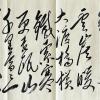 云崖暖
大渡橋横
鐵索寒
更喜岷山
千里